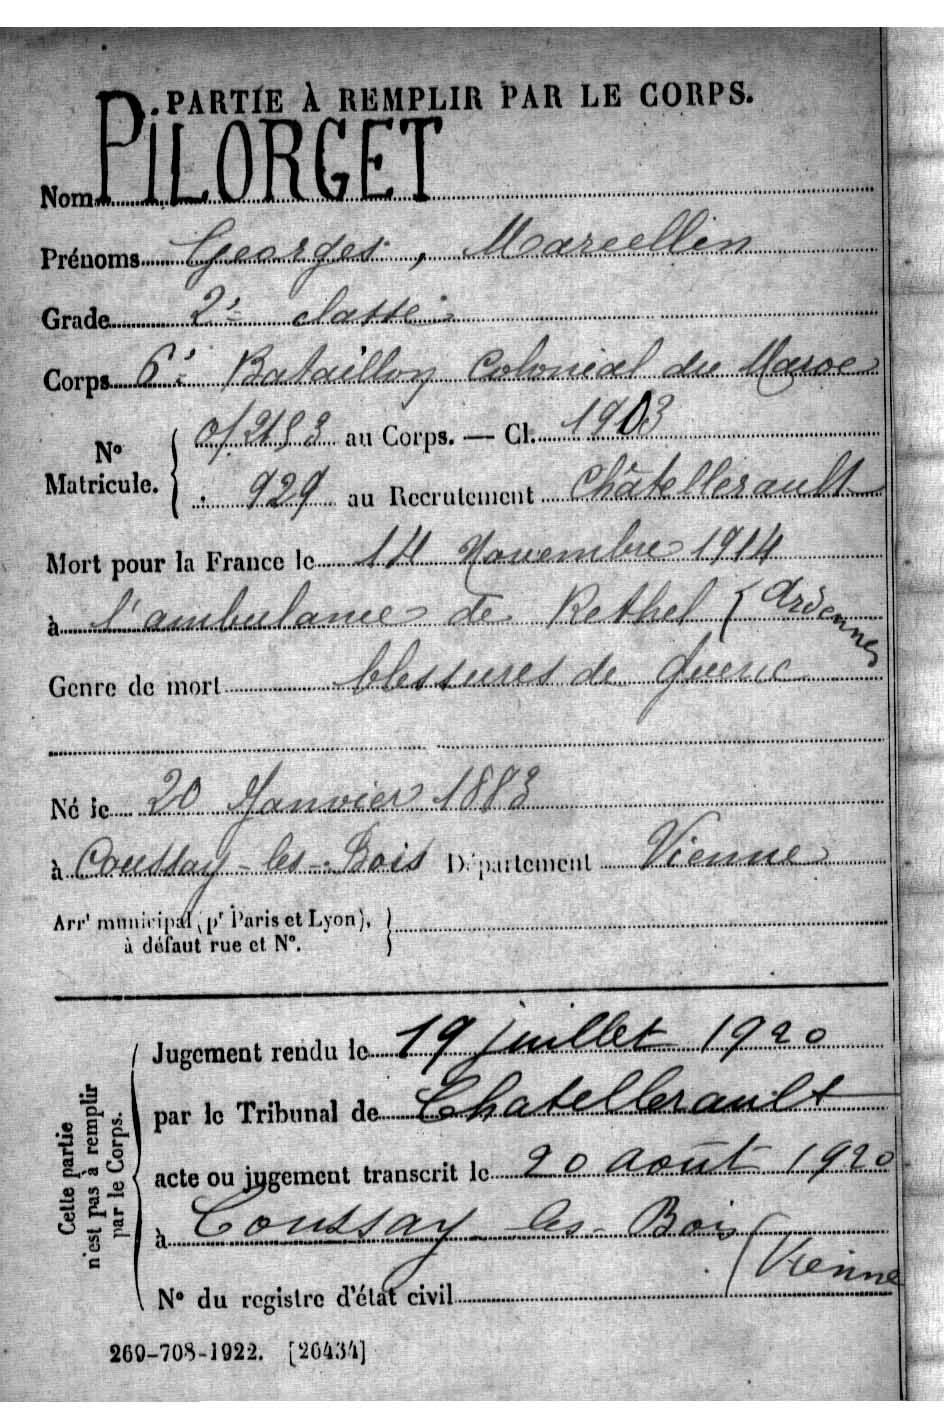 PARTIE À REMPLIR PAR LE CORPS.
Nom PiLORGET
Prénoms Georges, Marcellin
Grade 2e classe
Corps 6e Bataillon Colonial du Maroc
N° Matricule. { au Corps. — Cl. 1903
929 au Recrutement Châtellerault
Mort pour la France le 14 Novembre 1914
à l'ambulance de Rethel (Ardennes
Genre de mort blessures de guerre
Né le 20 Janvier 1883
à Coussay-les-Bois Département Vienne
Arrt municipal (pr Paris et Lyon), }
à défaut rue et N°.
Cette partie n'est pas à remplir par le Corps.
Jugement rendu le 19 juillet 1920
par le Tribunal de Chatellerault
acte ou jugement transcrit le 20 août 1920
à Coussay-les-Bois (Vienne
N° du registre d'état civil
269-708-1922. [26434]